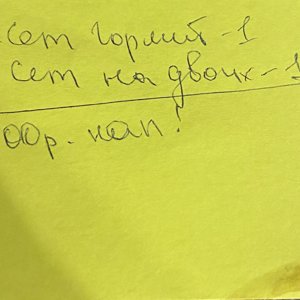 сет гормит-1
сет на двоих-1
оор. нап!